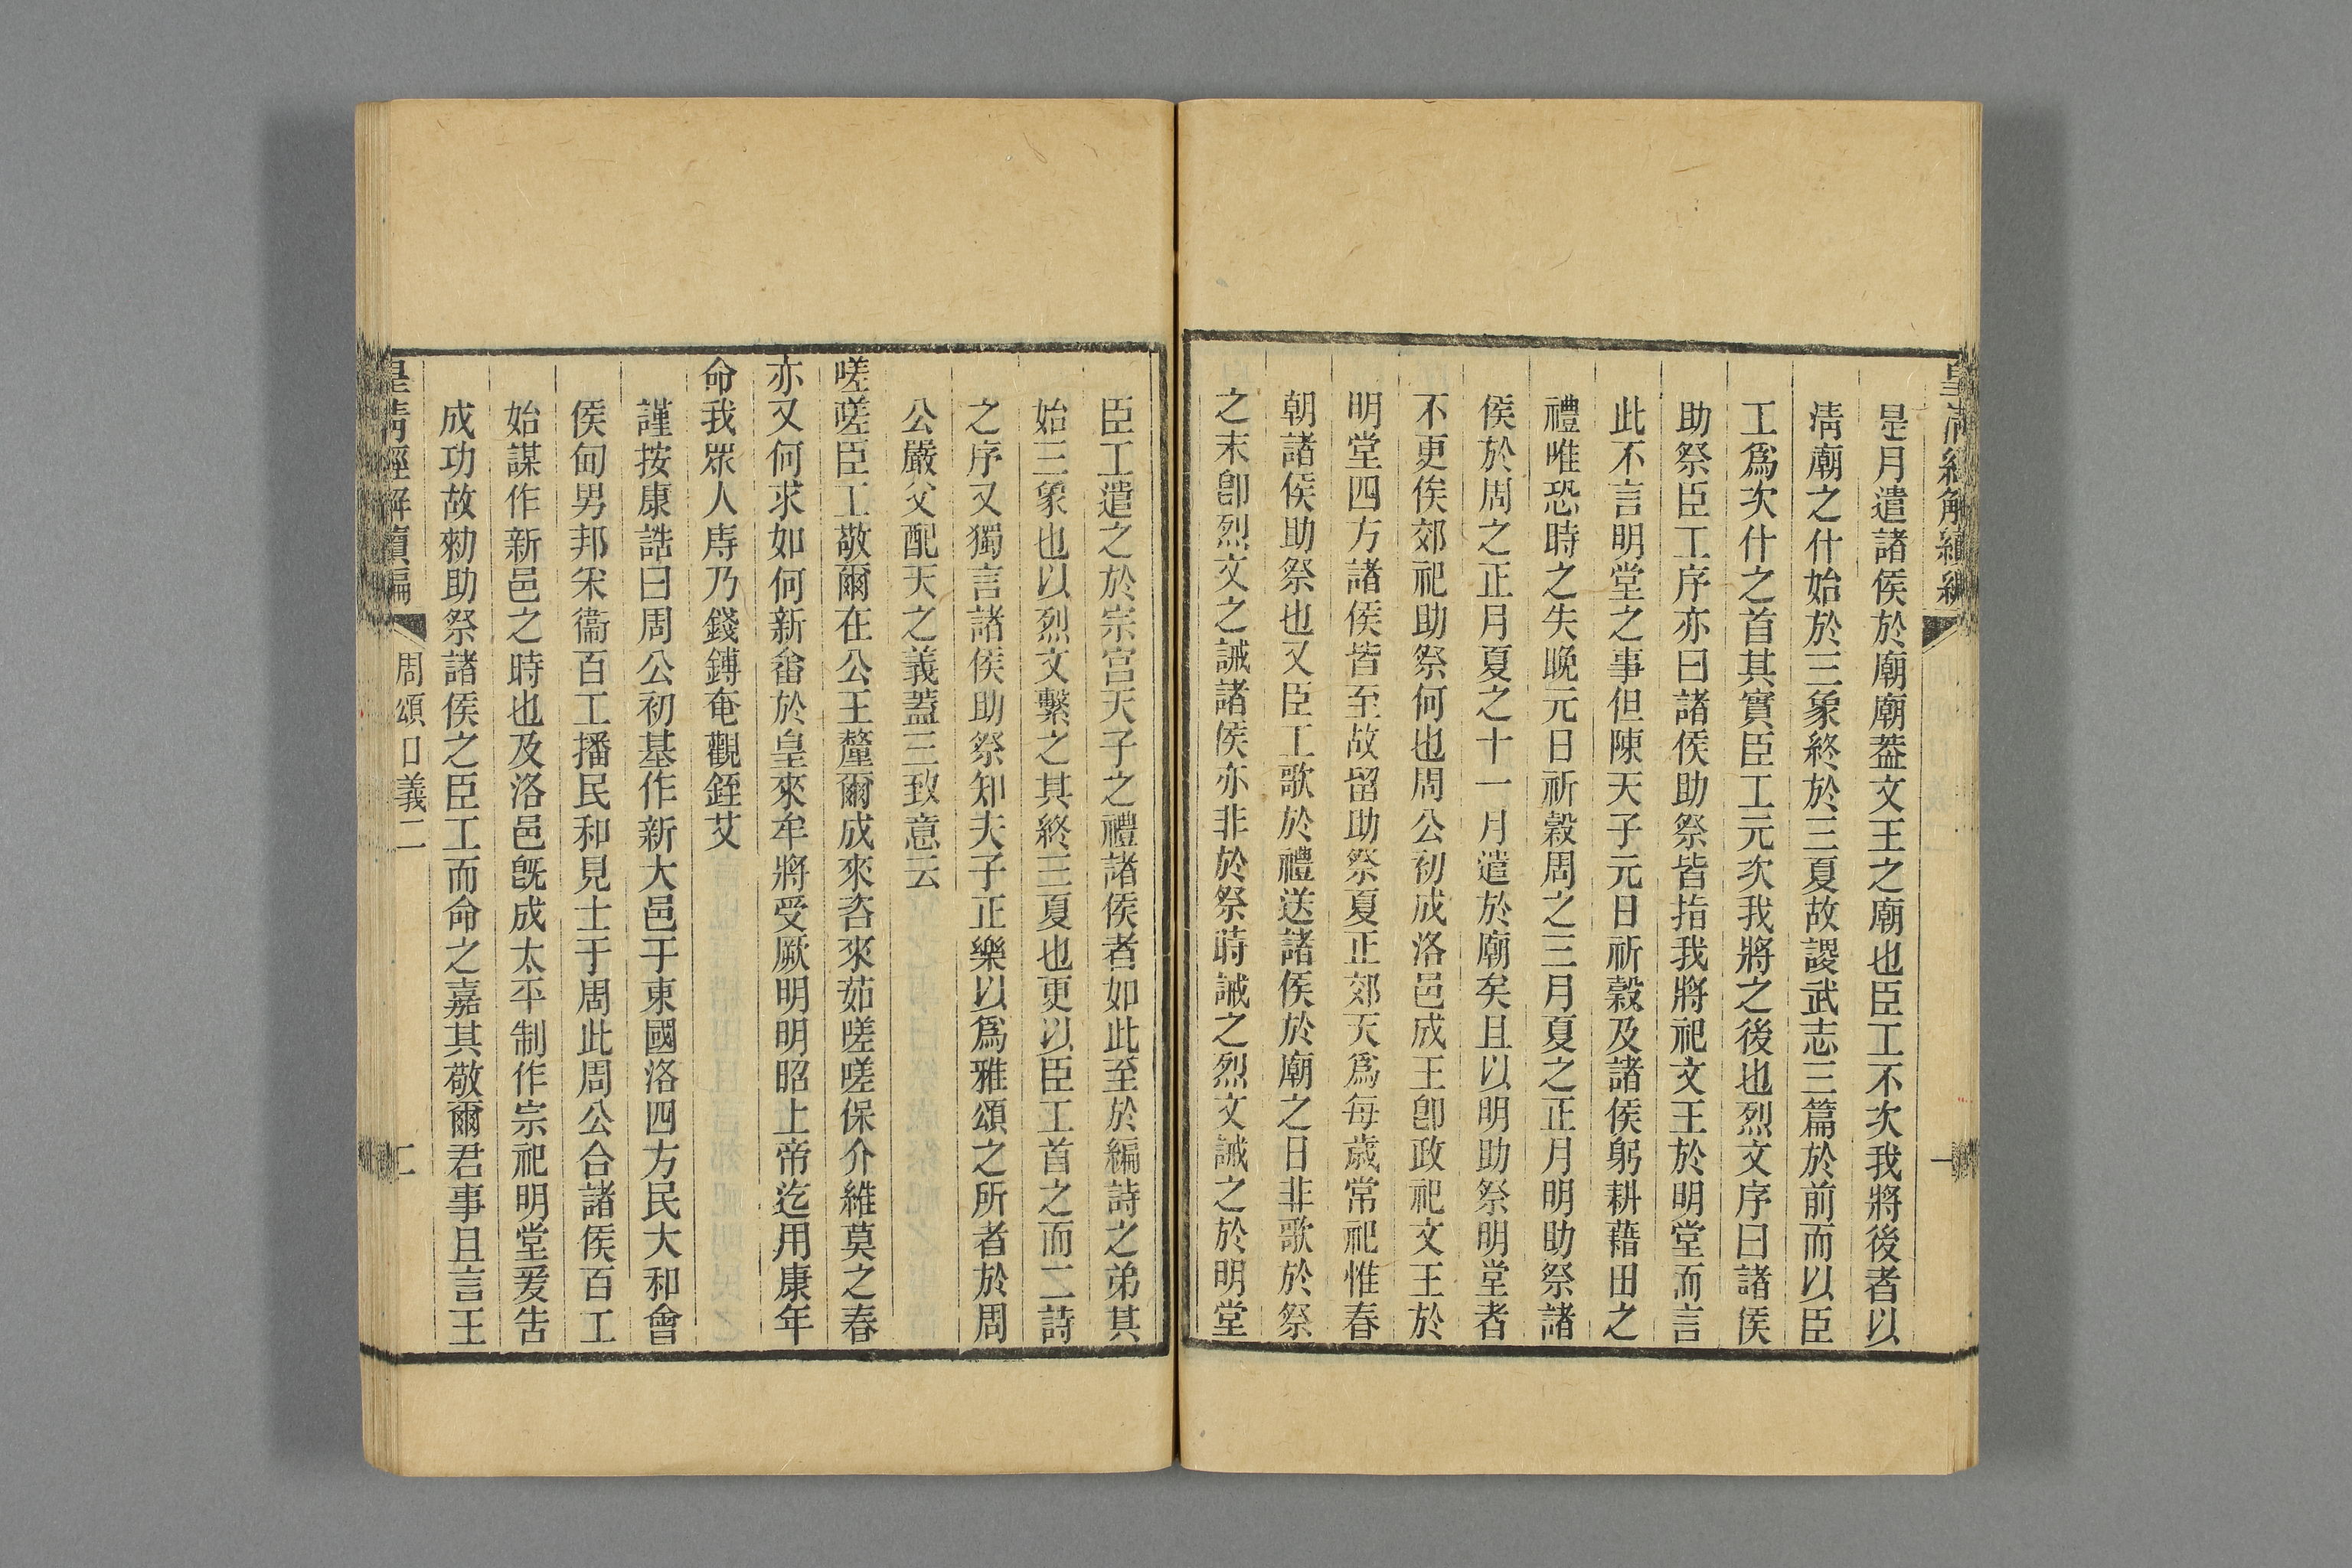 皇清經解續編
一
是月遣諸侯於廟廟葢文王之廟也臣工不次我將後者以
淸廟之什始於三象終於三夏故謖武志三篇於前而以臣
工爲次什之首其實臣工元次我將之後也烈文序曰諸侯
助祭臣工序亦曰諸侯助祭皆指我將祀文王於明堂而言
此不言明堂之事但陳天子元日祈穀及諸侯躬耕藉田之
禮唯恐時之失晚元日祈穀周之三月夏之正月明助祭諸
侯於周之正月夏之十一月遣於廟矣且以明助祭明堂者
不更俟郊祀助祭何也周公初成洛邑成王卽政祀文王於
明堂四方諸侯皆至故留助祭夏正郊天爲每歲常祀惟春
朝諸侯助祭也又臣工歌於禮送諸侯於廟之日非歌於祭
之末卽烈文之誡諸侯亦非於祭蒔誡之烈文誡之於明堂
臣工遣之於宗宮天子之禮諸侯者如此至於編詩之弟其
始三象也以烈文繫之其終三夏也更以臣工首之而二詩
之序又獨言諸侯助祭知夫子正樂以爲雅頌之所者於周
公嚴父配天之義蓋三致意云
嗟嗟臣工敬爾在公王釐爾成來咨來茹嗟嗟保介維莫之春
亦又何求如何新畬於皇來牟將受厥明明昭上帝迄用康年
命我眾人庤乃錢鎛奄觀銍艾
謹按康誥曰周公初基作新大邑于東國洛四方民大和會
侯甸男邦采衞百工播民和見士于周此周公合諸侯百工
始謀作新邑之時也及洛邑旣成太平制作宗祀明堂爰告
成功故勑助祭諸侯之臣工而命之嘉其敬爾君事且言王
皇清經解續編
周頌口義二
二